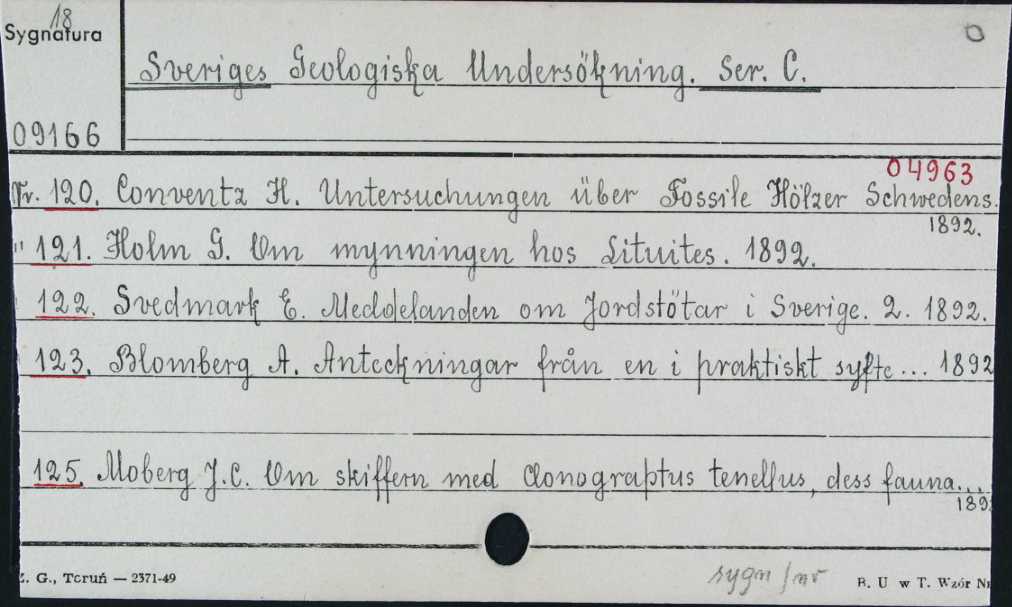 18
Sygnatura
Sveriges Geologiska Undersökning. Ser. C.
09166
04963
Nr. 120. Conventz H. Untersuchungen über Fossile Hölzer Schwedens.
1892.
" 121. Holm G. Om mynningen hos Lituites. 1892.
122. Svedmark E. Meddelanden om Jordstötar i Sverige. 2. 1892.
123. Blomberg A. Anteckningar från en i praktiskt syfte... 1892
125. Moberg J.C. Om skiffern med Clonograptus tenellus, dess fauna...
189
Z. G., Toruń — 2371-49
sygn/nr
B. U w T. Wzór Nr